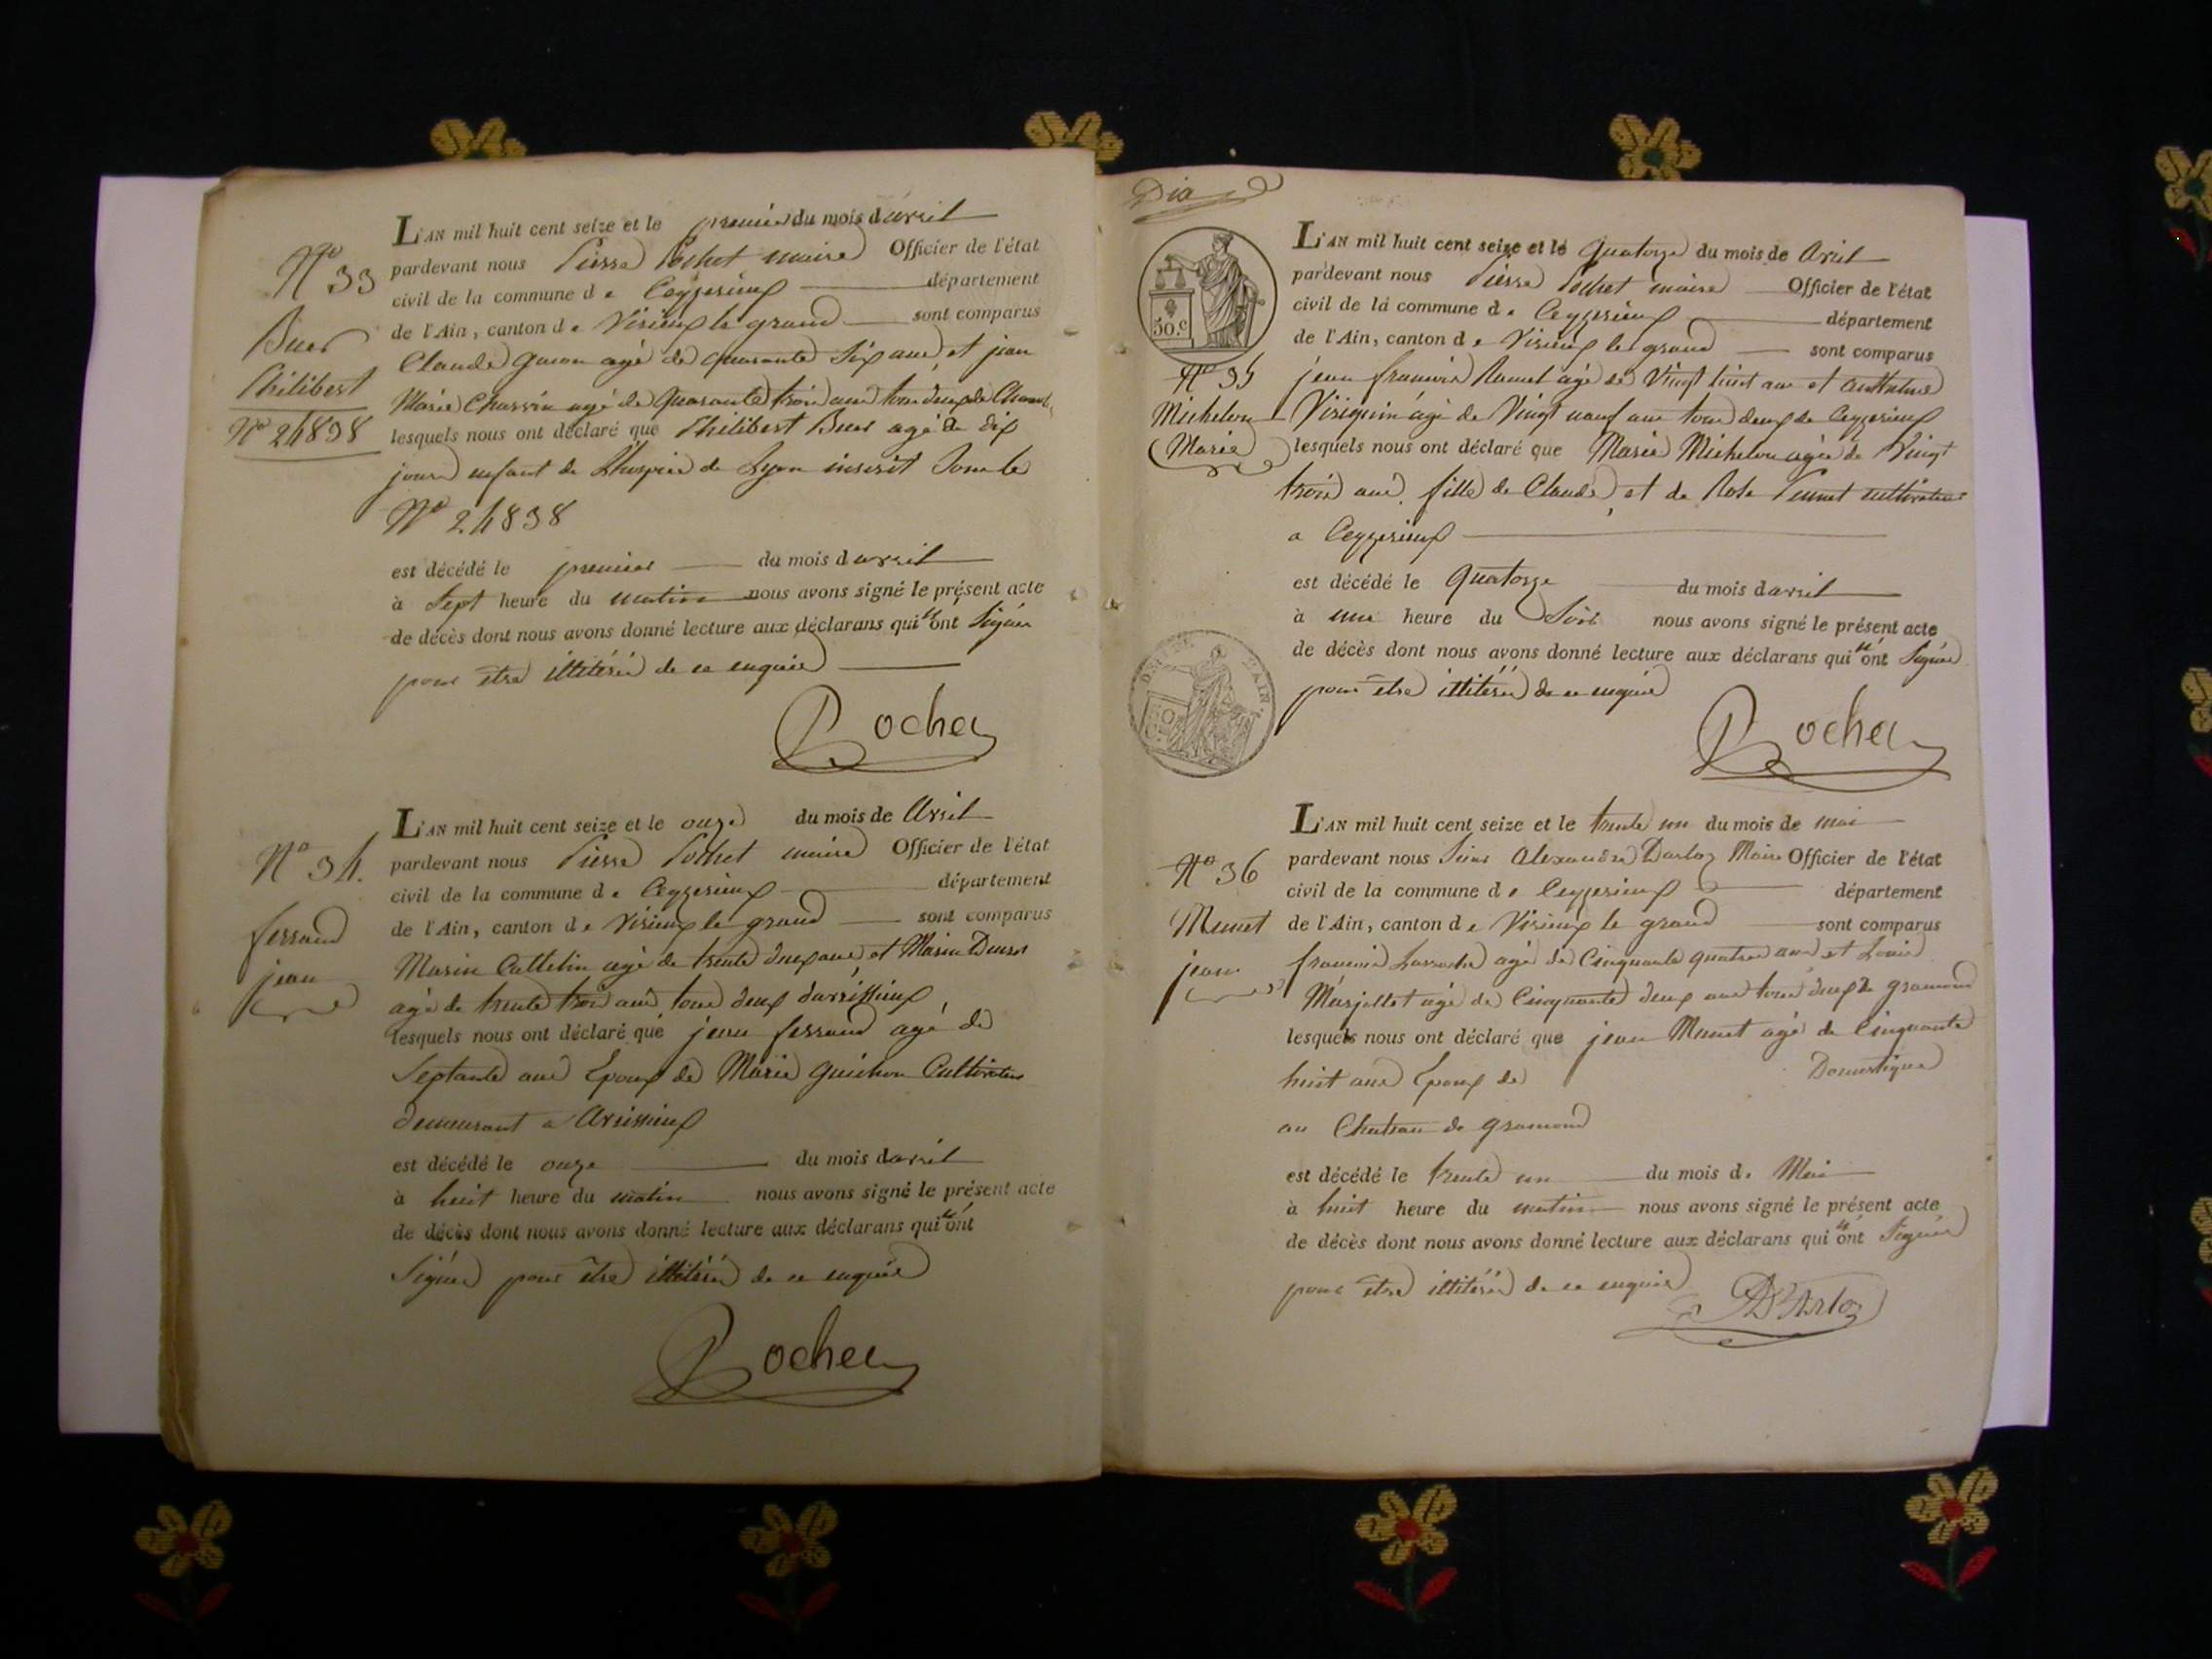 L'AN mil huit cent seize et le premier du mois d'avril
pardevant nous Pierre Pochet maire Officier de l'état
civil de la commune de Ceyzerieux département
de l'Ain, canton de Virieux le grand sont comparus
Claude agé de quarante six ans et jean
Marie Charvin agé de quarante trois ans tous deux de
lesquels nous ont déclaré que Philibert Buer agé de dix
jours enfant de L'hospice de Lyon inscrit Sous le
N° 24838
est décédé le premier du mois d'avril
à Sept heure du matin nous avons signé le présent acte
de décès dont nous avons donné lecture aux déclarans qui n'ont Signés
pour être illitérés de ce enquis
Pochet
N° 33
Buer
Philibert
N° 24838
L'AN mil huit cent seize et le onze du mois de Avril
pardevant nous Pierre Pochet maire Officier de l'état
civil de la commune de Ceyzerieux département
de l'Ain, canton de Virieux le grand sont comparus
Marin Cattelin agé de trente deux ans et Marin
agé de trente trois ans tous deux d'avrissieux
lesquels nous ont déclaré que jean ferrand agé de
Septante ans Epoux de Marie guichon Cultivateur
demeurant a Avrissieux
est décédé le onze du mois d'avril
à huit heure du matin nous avons signé le présent acte
de décès dont nous avons donné lecture aux déclarans qui n'ont
Signés pour être illitérés de ce enquis
Pochet
N° 34.
ferrand
jean
50.c
DEP. DE L'AIN.
L'AN mil huit cent seize et le quatorze du mois de Avril
pardevant nous Pierre Pochet maire Officier de l'état
civil de la commune de Ceyzerieux département
de l'Ain, canton de Virieux le grand sont comparus
jean francois agé de Vingt huit ans et anthelme
agé de Vingt neuf ans tous deux de Ceyzerieux
lesquels nous ont déclaré que Marie Michelon agée de Vingt
trois ans fille de Claude, et de Rose cultivateur
a Ceyzerieux
est décédé le quatorze du mois d'avril
à une heure du Soir nous avons signé le présent acte
de décès dont nous avons donné lecture aux déclarans qui n'ont Signés
pour être illitérés de ce enquis
Pochet
N° 35
Michelon
Marie
L'AN mil huit cent seize et le trente un du mois de mai
pardevant nous alexandre Darloz Maire Officier de l'état
civil de la commune de Ceyzerieux département
de l'Ain, canton de Virieux le grand sont comparus
francois agé de Cinquante quatre ans et Louis
Marjollet agé de Cinquante deux ans tous deux de gramond
lesquels nous ont déclaré que jean Munet agé de Cinquante
huit ans Epoux de Domestique
au Chateau de gramond
est décédé le trente un du mois de Mai
à huit heure du matin nous avons signé le présent acte
de décès dont nous avons donné lecture aux déclarans qui n'ont Signés
pour être illitérés de ce enquis
AD'Arloz
N° 36
Munet
jean